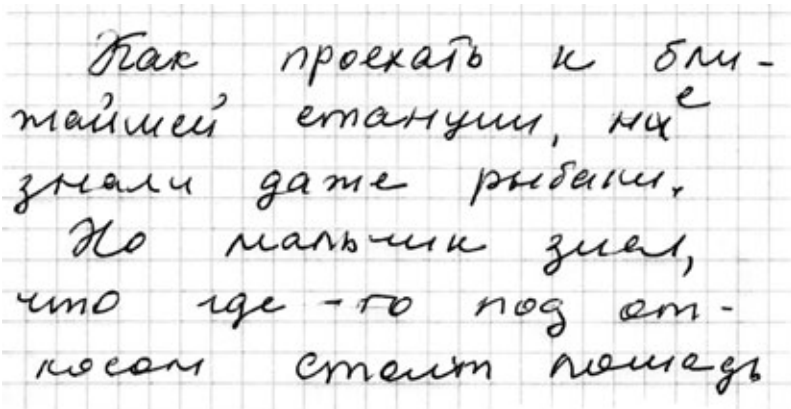 Как проехать к бли-
жайшей станции, не
знали даже рыбаки.
Но мальчик знал,
что где-то под от-
косом стоит лошадь